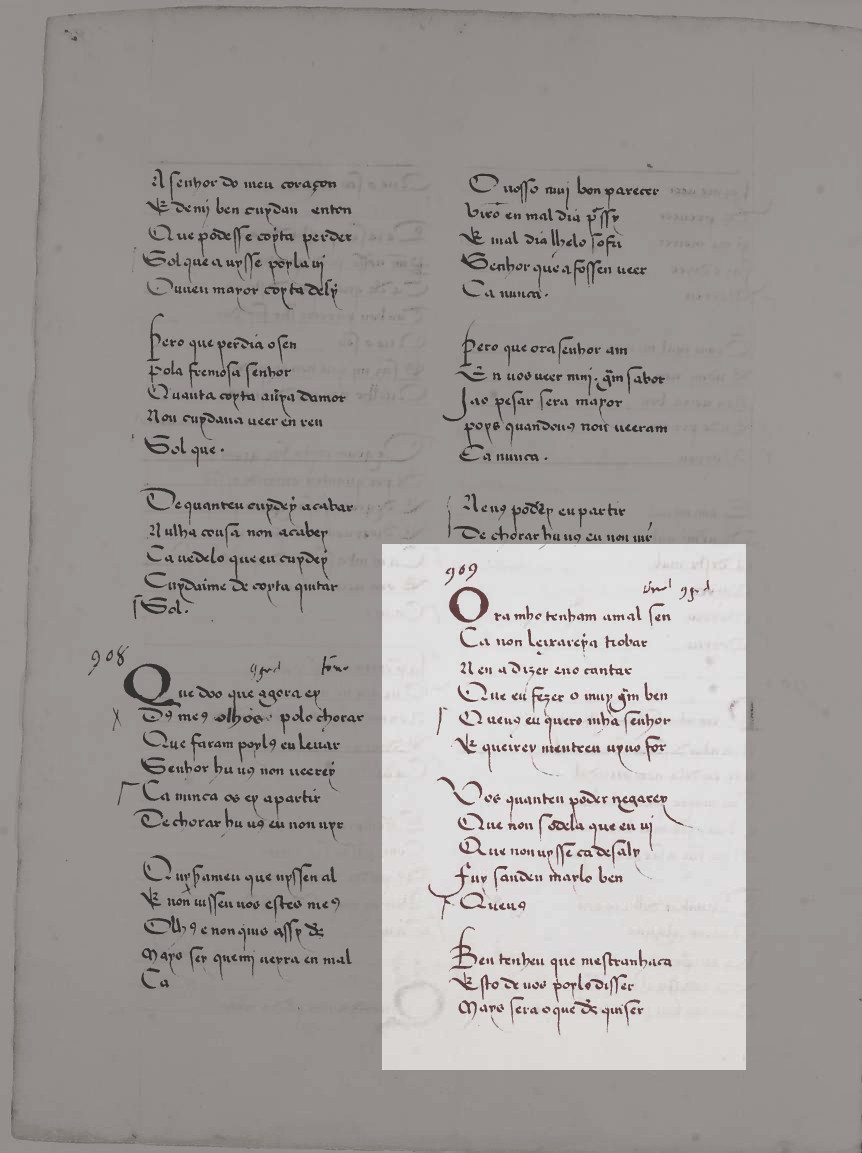 A senhor do meu coraçon
E de mj ben cuydau enton
Que podesse coyta perder
Sol que a uysse poyla uj
Ouueu mayor coyta dely
Pero que perdia o sen
pola fremosa senhor
Quanta coyta auya damor
Non cuydaua ueer en ren
Sol que.
De quanteu cuydey acabar
Nulha cousa non acabey
Ca uedelo que eu cuydey
Cuydaime de coyta quitar
Sol.
908
Que doo que agora ey
D9 me9 olhos polo chorar
Que faram poyl9 eu leuar
Senhor hu u9 non ueerey
Ca nunca os ey a partir
De chorar hu u9 eu non uyr
que uyssen al
E non uissen uos estes me9
Olh9 e non quis assy d's
Mays sey que mj uerra en mal
Ca
O uosso muj bon parecer
en mal dia
E mal dia lhelo sofri
Senhor que a fossen ueer
Ca nunca.
Pero que ora senhor am
En uos ueer muj. g̃m sabor
Jao pesar sera mayor
poys quandou9 non ueeram
Ca nunca.
Neu9 poderey eu partir
De chorar hu u9 eu non uir
909
Ora mho tenham a mal sen
Ca non leixareya trobar
Nen a dizer eno cantar
Que eu fezer o muy g̃m ben
Queu9 eu quero mha senhor
E querey mentreu uyuo for
Vos quanteu poder negarey
Que non sodela que eu uj
Que non uysse ca desaly
Fuy sandeu maylo ben
Queu9
Ben tenheu que mestranhaca
Esto de uos poylo disser
Mays sera o que d's quiser